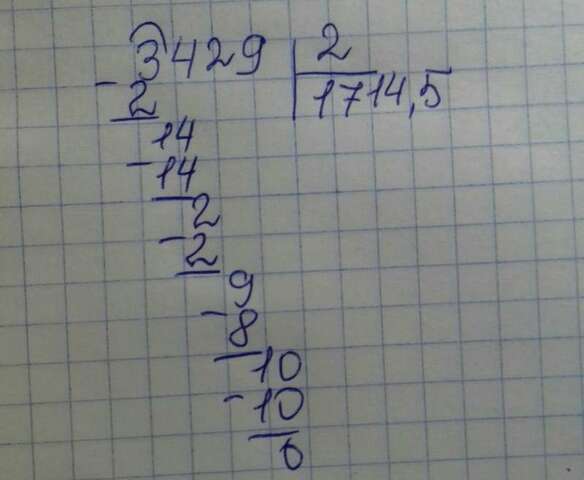 3429 2
- 2 1714,5
14
- 14
2
- 2
9
- 8
10
- 10
0